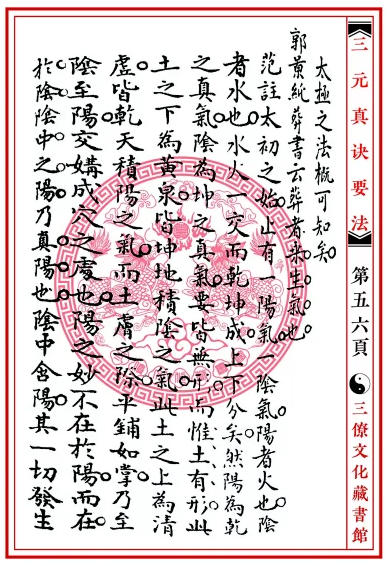 三元真诀要法
第五六頁
三僚文化藏書館
太極之法概可知矣
郭景純葬書云葬者乘生氣也
范註太初之始止有一陽氣一陰氣陽者火也陰
者水也水火一交而乾坤成上下分矣然陽為乾
之真氣陰為坤之真氣要皆無形而惟土有形此
土之下為黃泉皆坤地積陰之氣此土之上為清
虛皆乾天積陽之氣而土膚之際平鋪如掌乃至
陰至陽交媾成穴之處也陽之妙不在於陽而在
於陰陰中之陽乃真陽也陰中含陽其一切發生